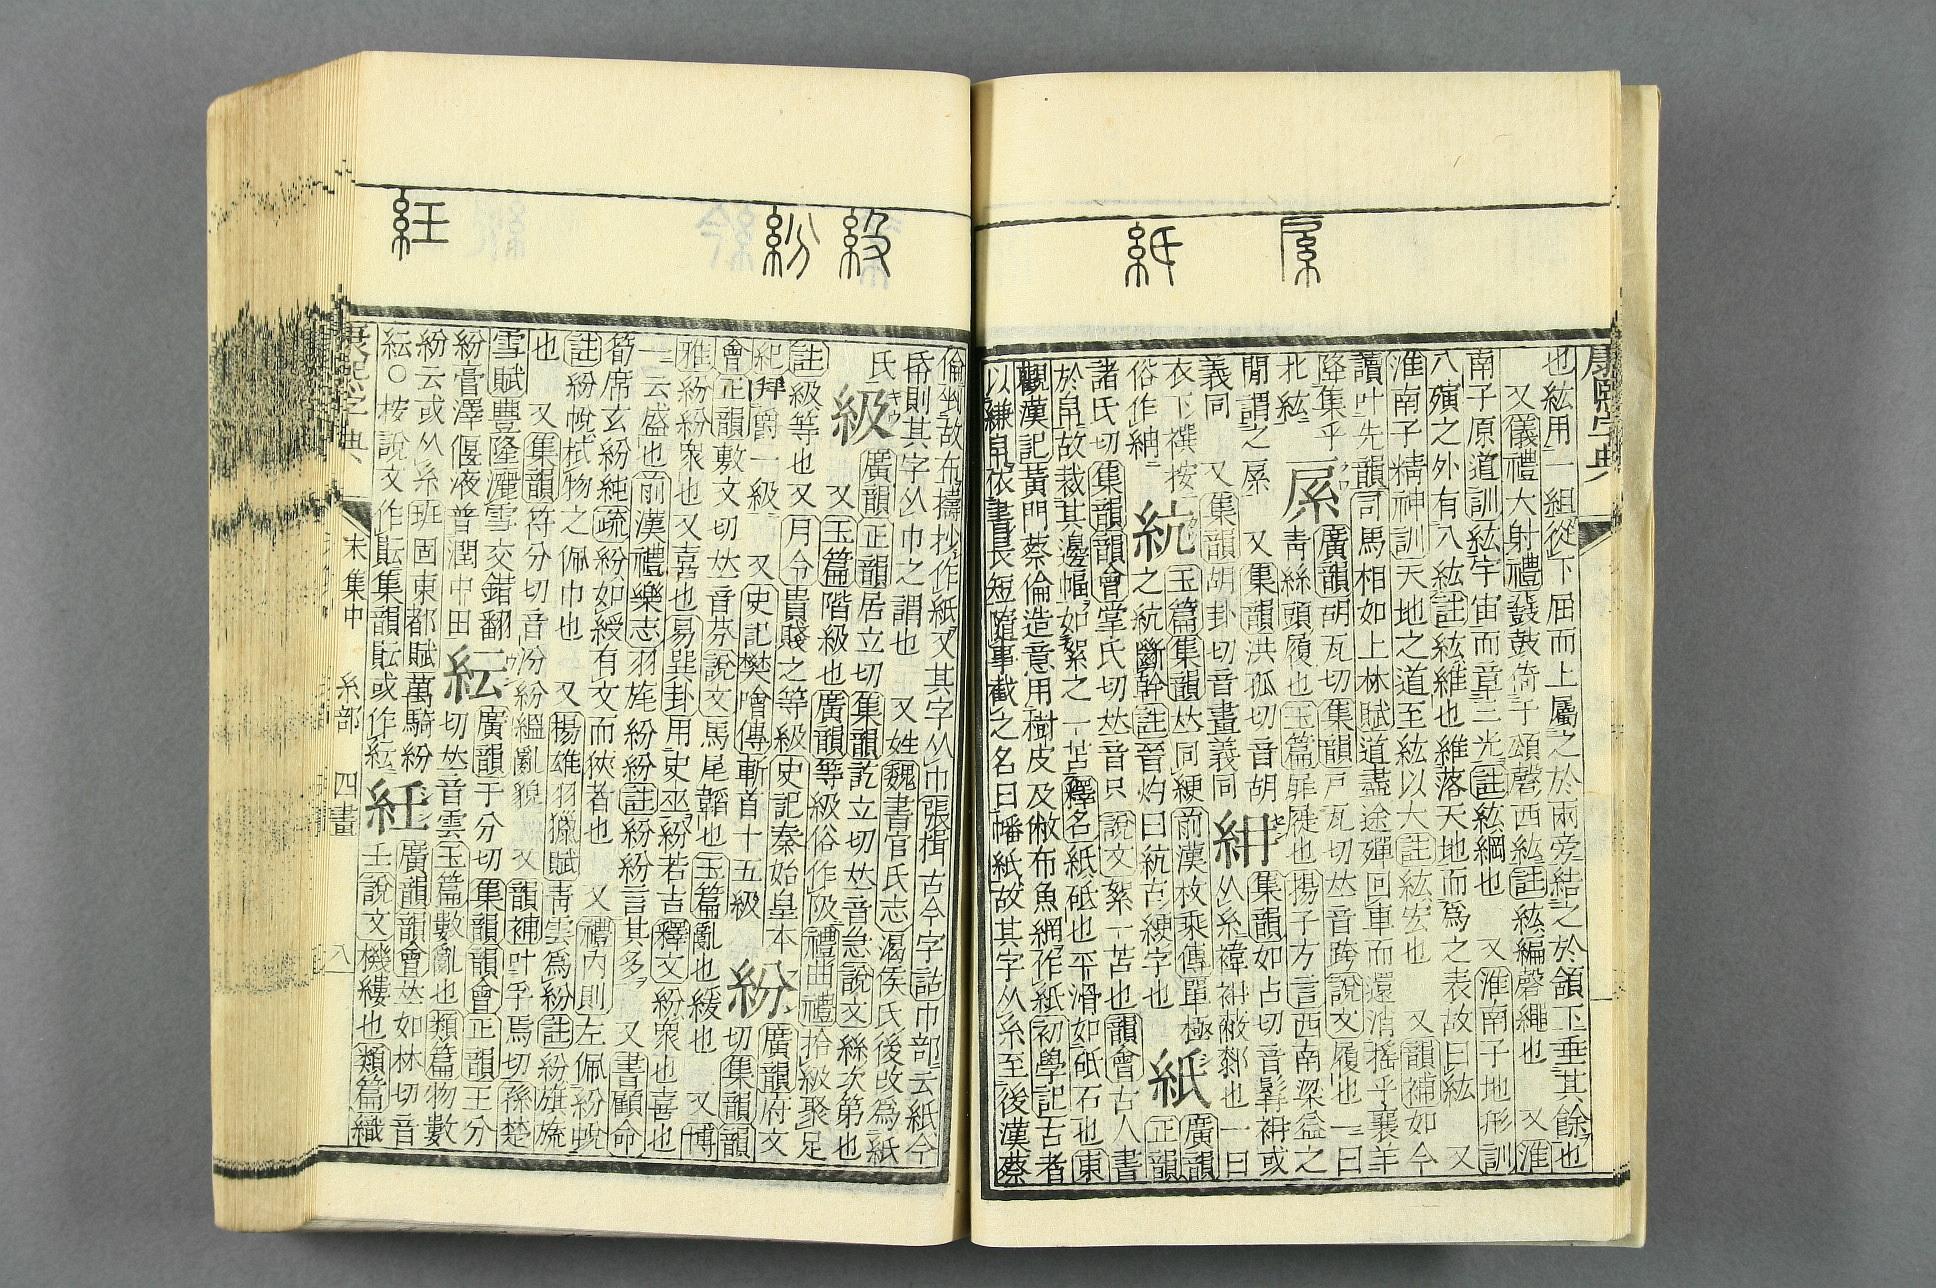 糸 紙
也紘用一組從下屈而上屬之於兩旁結之於頷下垂其餘也
又儀禮大射禮鼗鼓倚于頌磬西紘註紘編磬繩也 又淮
南子原道訓紘宇宙而章三光註紘綱也 又淮南子地形訓
八殥之外有八紘註紘維也維落天地而爲之表故曰紘 又
淮南子精神訓天地之道至紘以大註紘宏也 又韻補如今
讀叶先韻司馬相如上林賦道盡途殫回車而還消搖乎襄羊
降集乎
北紘
青絲頭履也玉篇扉屣也揚子方言西南梁益之
廣韻胡瓦切集韻戸瓦切𠀤音跨說文履也一曰
閒謂之 又集韻洪孤切音胡
義同 又集韻胡卦切音畫義同
紺
集韻如占切音髥袡或
从糸褘袡蔽膝也一曰
衣下襈按
俗作紳
統
玉篇集韻𠀤同綆前漢枚乗傳單極
之統斷幹註晉灼曰統古綆字也
紙
廣韻
正韻
諸氏切集韻韻會掌氏切𠀤音只說文絮一苫也韻會古人書
於帛故裁其邊幅如絮之一苫釋名紙砥也平滑如砥石也東
觀漢記黃門蔡倫造意用樹皮及敝布魚網作紙初學記古者
以縑帛依書長短隨事截之名曰幡紙故其字从糸至後漢蔡
康熙字典
級 紛 紝
倫剉故布擣抄作紙又其字从巾張揖古今字詁巾部云紙今
帋則其字从巾之謂也 又姓魏書官氏志渴侯氏後改爲紙
氏
級
廣韻正韻居立切集韻訖立切𠀤音急說文絲次第也
又玉篇階級也廣韻等級俗作阪禮曲禮拾級聚足
註級等也又月令貴賤之等級史記秦始皇本
紀拜爵一級 又史記樊噲傳斬首十五級
紛
廣韻府文
切集韻韻
會正韻敷文切𠀤音芬說文馬尾韜也玉篇亂也緩也 又博
雅紛紛衆也又喜也易巽卦用史巫紛若古釋文紛衆也喜也
一云盛也前漢禮樂志羽旄紛紛註紛紛言其多 又書顧命
筍席玄紛純疏紛如綬有文而狹者也 又禮內則左佩紛帨
註紛帨拭物之佩巾也 又揚雄羽獵賦靑雲爲紛註紛旗旒
也 又集韻符分切音汾紛縕亂貌 又韻補叶孚焉切孫楚
雪賦豐隆灑雪交錯翻
紛膏澤偃液普潤中田
紜
廣韻于分切集韻韻會正韻王分
切𠀤音雲玉篇數亂也類篇物數
紛云或从糸班固東都賦萬騎紛
紜○按說文作䢵集韻䢵或作紜
紝
廣韻韻會𠀤如林切音
壬說文機縷也類篇織
康熙字典 未集中 糸部 四畫 八